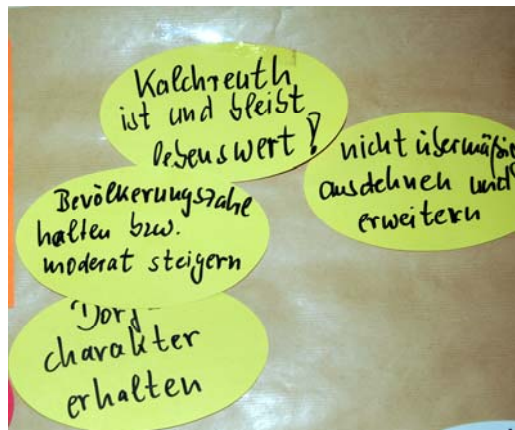 Kalchreuth
ist und bleibt
lebenswert!
nicht übermäßig
ausdehnen und
erweitern
Bevölkerungszahl
halten bzw.
moderat steigern
Dorf-
charakter
erhalten